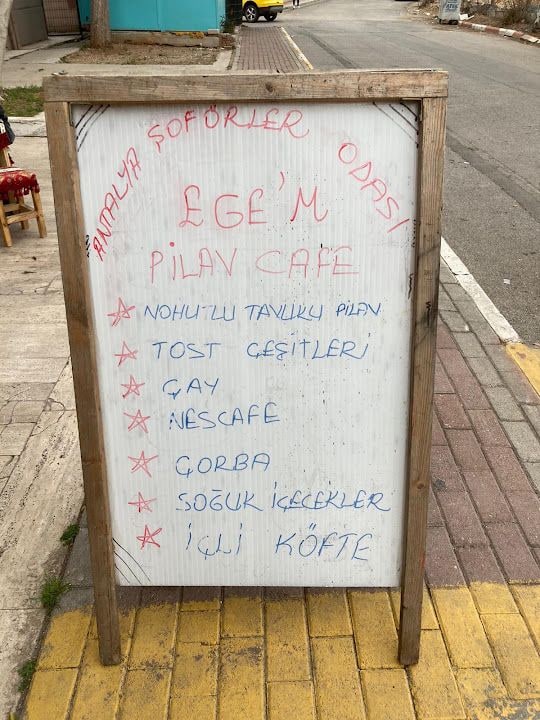 ANTALYA ŞOFÖRLER ODASI
EGE'M
PİLAV CAFE
NOHUTLU TAVUKLU PİLAV
TOST ÇEŞİTLERİ
ÇAY
NESCAFE
ÇORBA
SOĞUK İÇECEKLER
İÇLİ KÖFTE